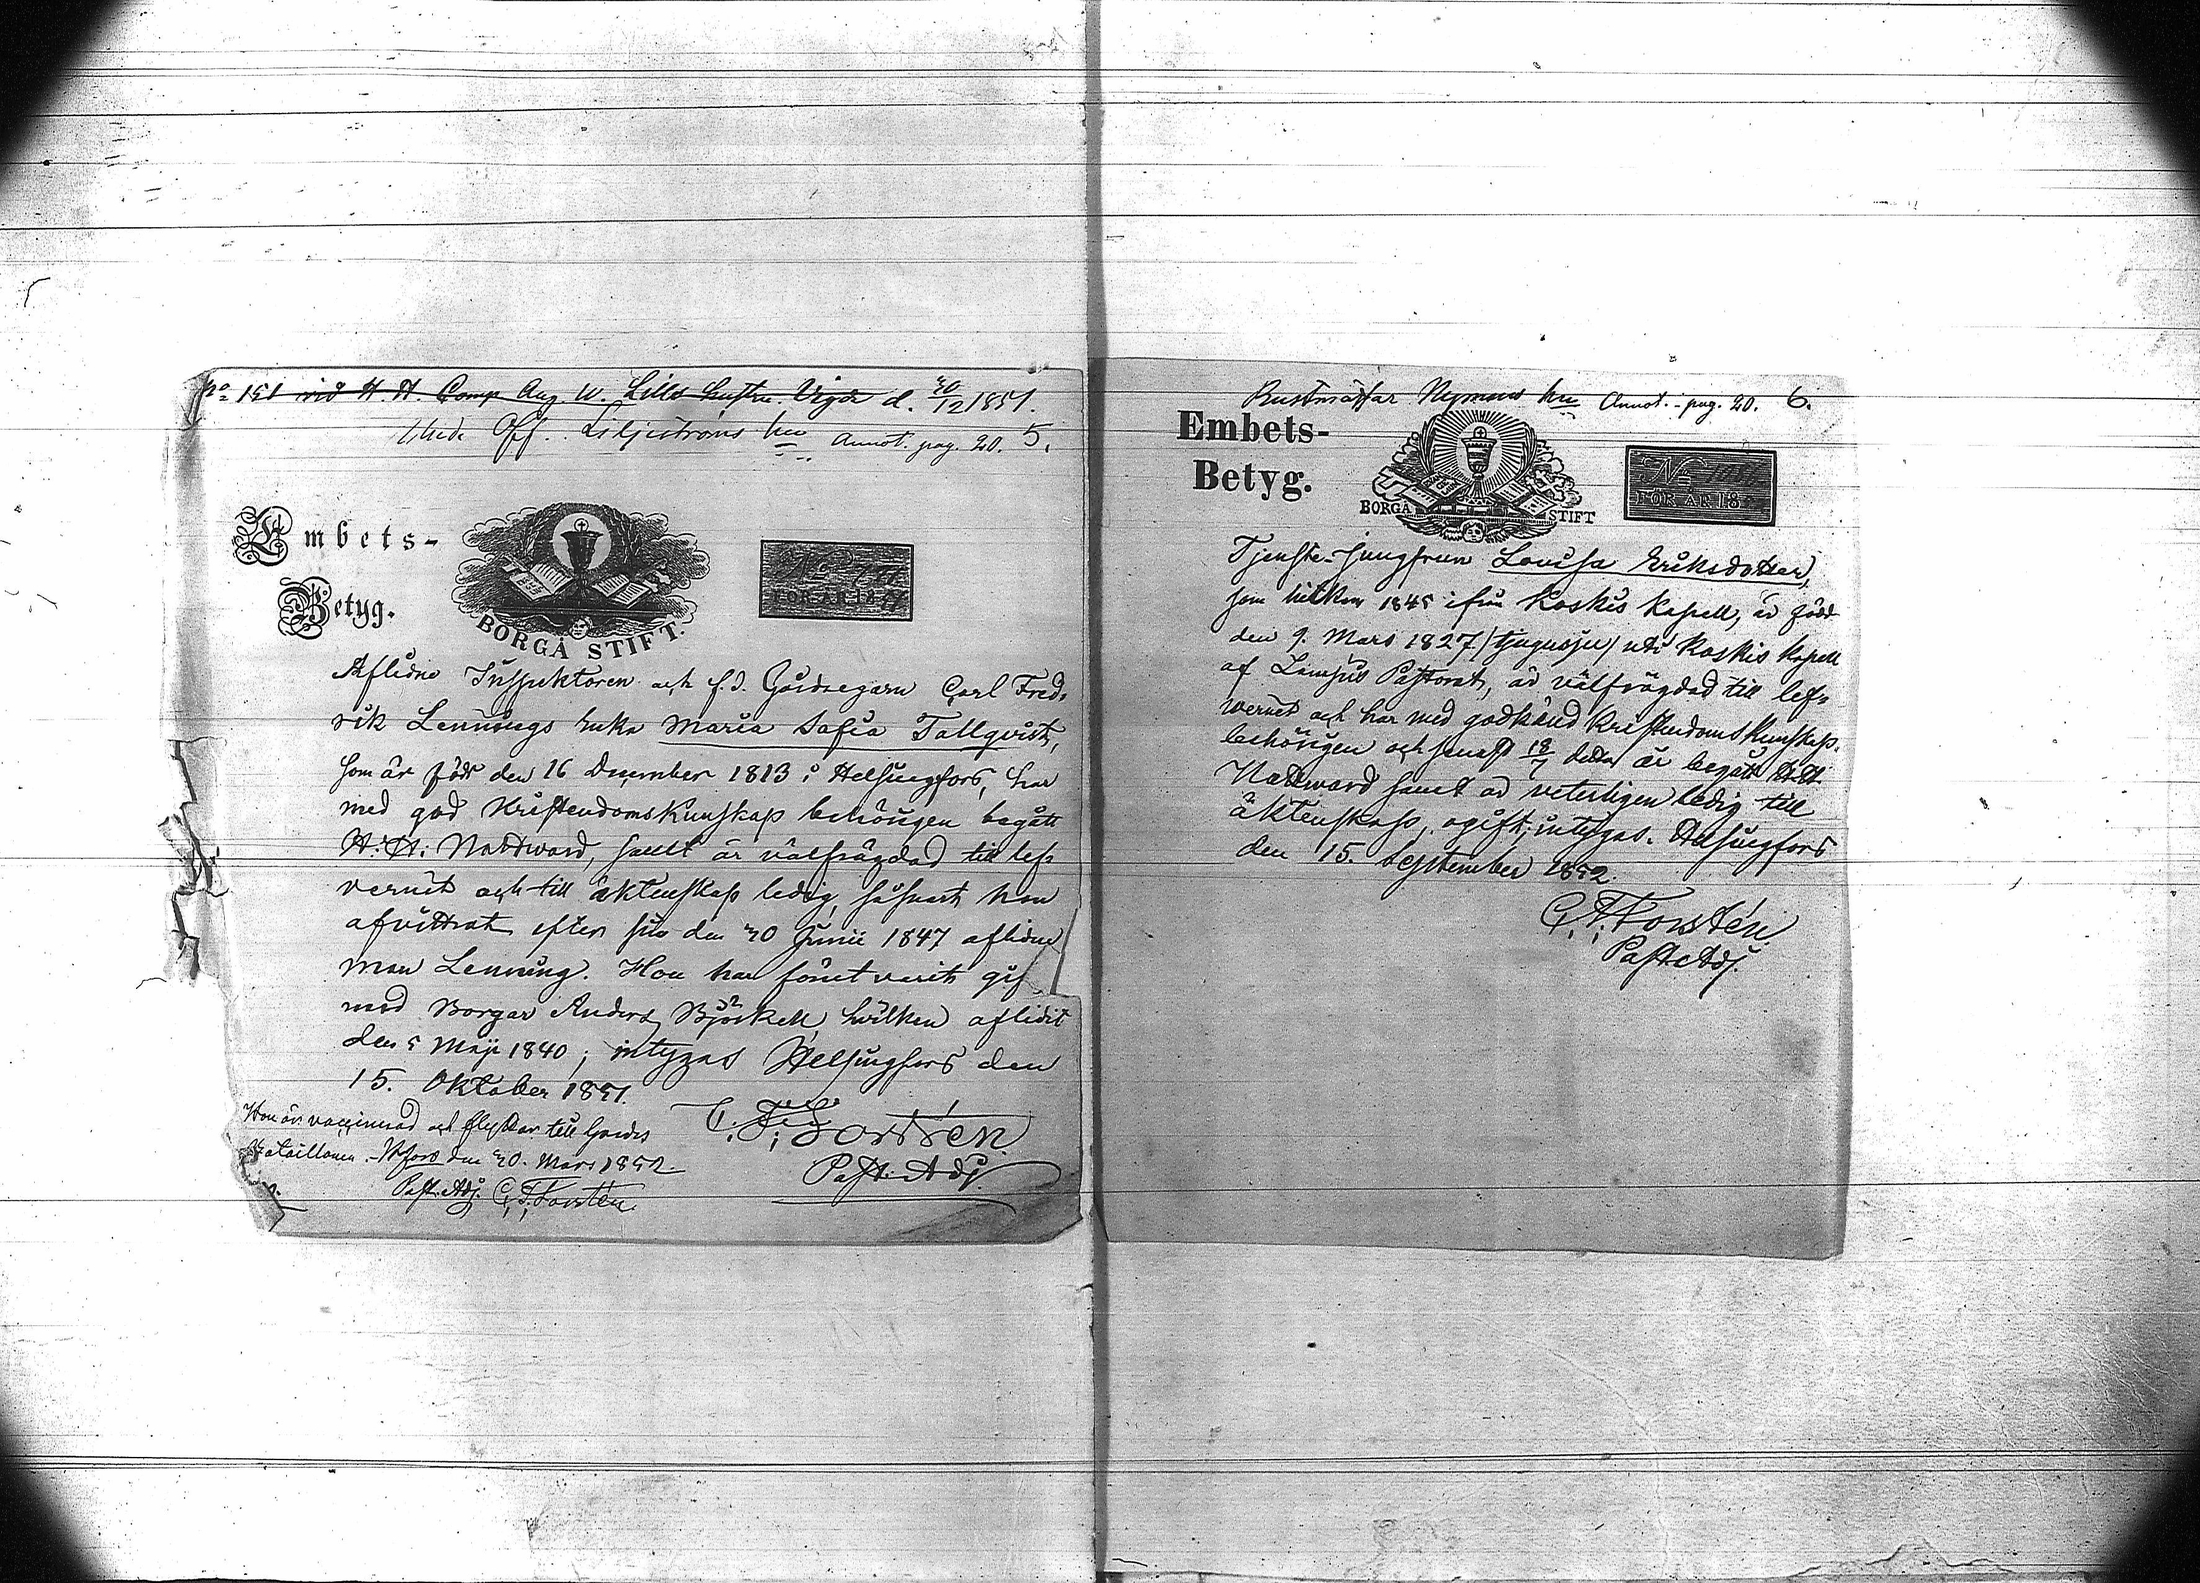 No 151 vid H. H. Comp Aug. W. Lills hustru. Vigde d. 30/12 1851.
Unde Off. Liljeströms hu Annot. pag. 20. 5.
Embets-
Betyg.
BORGÅ STIFT.
No
FÖR ÅR 18
Aflidne Inspektoren och f.d. Gårdsegarn Carl Fred-
rik Lennings Enka Maria Sofia Tallqvist,
som är född den 16 December 1813 i Helsingfors, har
med god Kristendomskunskap behörigen begått
H. H. Nattward, samt är välfrägdad till lef-
vernet och till äktenskap ledig, såsnart hon
afvittrat efter sin den 30 Junii 1847 aflidne
man Lenning. Hon har förut varit gif
med Borgar Anders Björkell, hvilken aflidit
den 5 Maji 1840; intygas Helsingfors den
15. Oktober 1851.
C. F. Forstén
Past. Adj.
Hon är vaccinerad och flyttar till Gardes
Bataillonen. H:fors den 30. Mars 1852.
Past. Adj. C. F. Forstén.
Rustmästar Nymans hu Annot. pag. 20. 6.
Embets-
Betyg.
BORGÅ STIFT
No
FÖR ÅR 18
Tjenste-jungfrun Lovisa Eriksdotter,
som hitkom 1845 ifrån Koskis Kapell, är född
den 9. Mars 1827 (tjugusju) uti Koskis Kapell
af Lampis Pastorat, är välfrägdad till lef-
wernet och har med godkänd Kristendomskunskap
behörigen och senast 18/7 detta år begått H. H.
Nattward samt är veterligen ledig till
äktenskap, ogift; intygas. Helsingfors
den 15. September 1852.
C. F. Forstén.
Past. Adj.